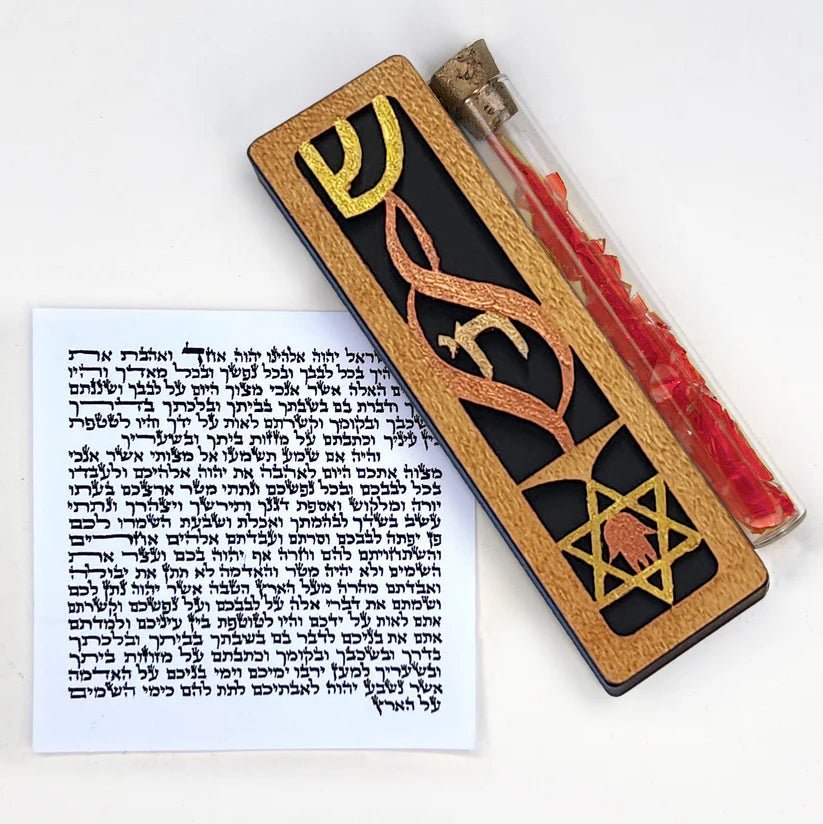 יהוה אלהינו יהוה אחד ואהבת את
בכל לבבך ובכל נפשך ובכל מאדך והיו
האלה אשר אנכי מצוך היום על לבבך ושננתם
ודברת בם בשבתך בביתך ובלכתך בדרך
ובקומך וקשרתם לאות על ידך והיו לטטפת
בין עיניך וכתבתם על מזזות ביתך ובשעריך
והיה אם שמע תשמעו אל מצותי אשר אנכי
מצוה אתכם היום לאהבה את יהוה אלהיכם ולעבדו
בכל לבבכם ובכל נפשכם ונתתי מטר ארצכם בעתו
יורה ומלקוש ואספת דגנך ותירשך ויצהרך ונתתי
עשב בשדך לבהמתך ואכלת ושבעת השמרו לכם
פן יפתה לבבכם וסרתם ועבדתם אלהים אחרים
והשתחויתם להם וחרה אף יהוה בכם ועצר את
השמים ולא יהיה מטר והאדמה לא תתן את יבולה
ואבדתם מהרה מעל הארץ הטבה אשר יהוה נתן לכם
ושמתם את דברי אלה על לבבכם ועל נפשכם וקשרתם
אתם לאות על ידכם והיו לטוטפת בין עיניכם ולמדתם
אתם את בניכם לדבר בם בשבתך בביתך ובלכתך
בדרך ובשכבך ובקומך וכתבתם על מזוזות ביתך
ובשעריך למען ירבו ימיכם וימי בניכם על האדמה
אשר נשבע יהוה לאבתיכם לתת להם כימי השמים
על הארץ
ש
חי